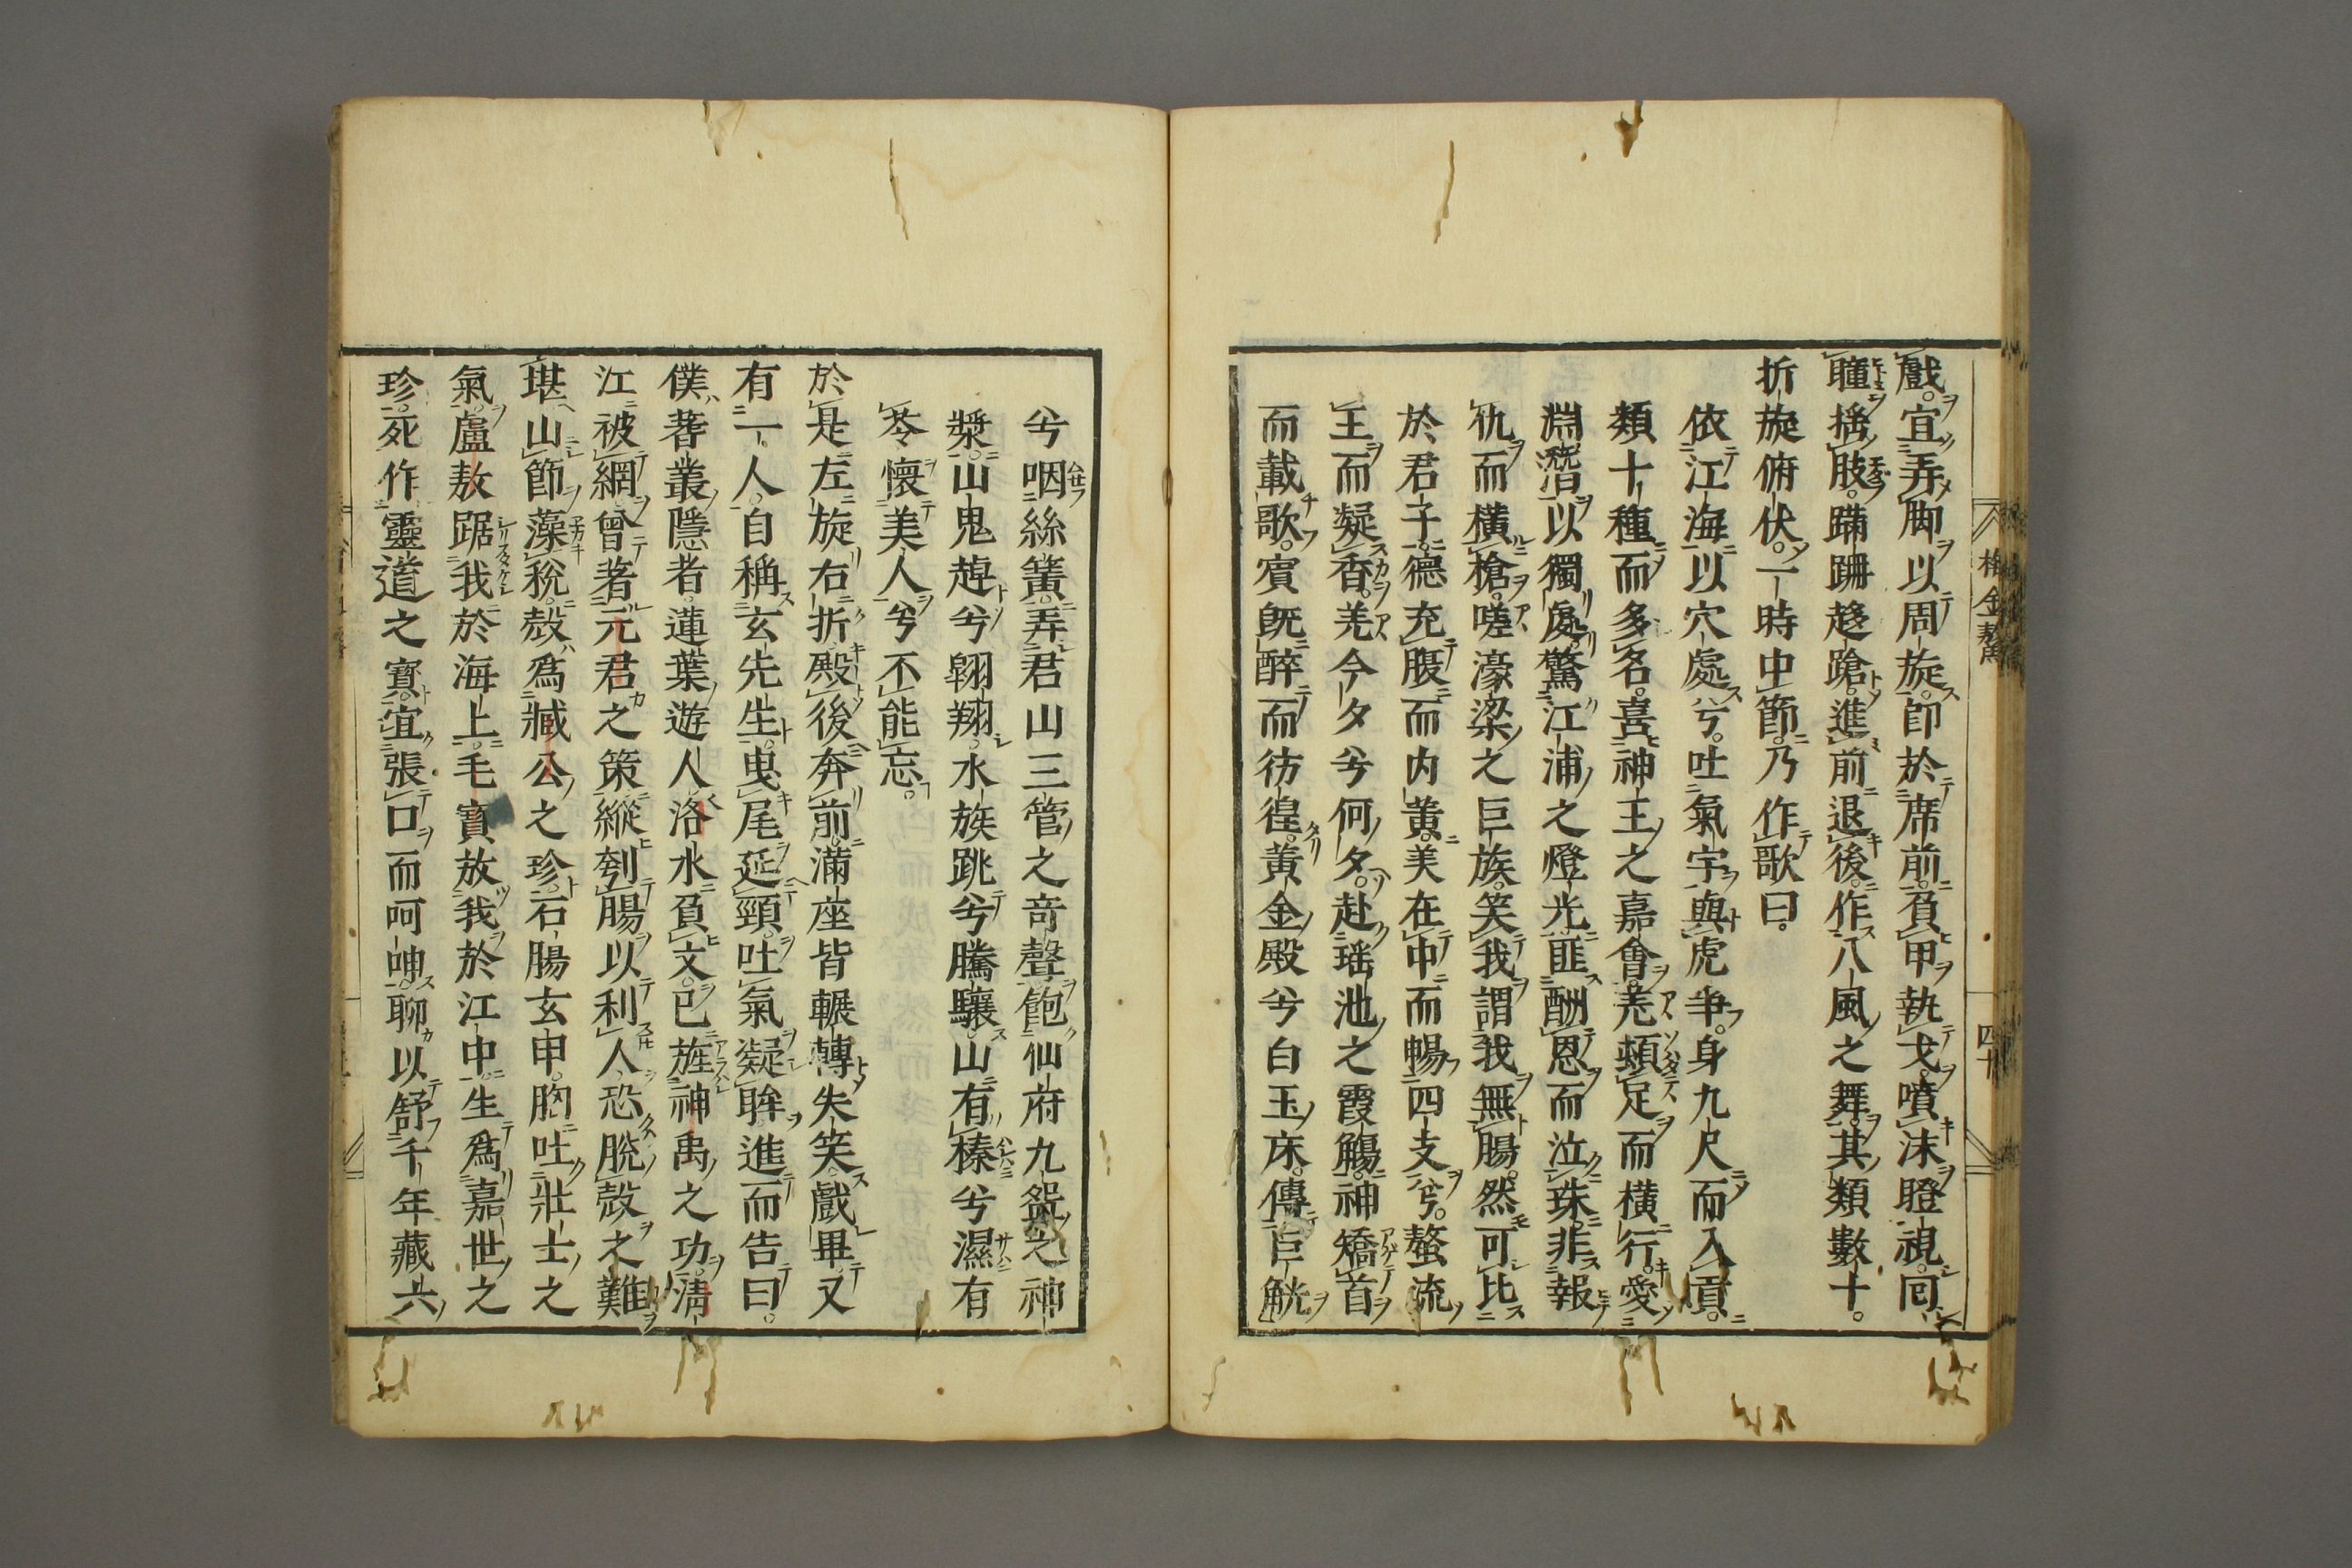 戲宜弄脚以周旋即於席前負甲執戈噴沫瞪視回
瞳搖肢蹣跚趍蹌進前退後作八風之舞其類數十
折旋俯伏一時中節乃作歌曰
依江海以穴處兮吐氣宇與虎爭身九尺而入貢
類十種而多名喜神王之嘉會羌頓足而橫行愛
淵潛以獨處驚江浦之燈光匪酬恩而泣珠非報
仇而橫槍嗟濠梁之巨族笑我謂我無腸然可比
於君子德充腹而內黃美在中而暢四支兮螯流
玉而凝香羌今夕兮何夕赴瑶池之霞觴神矯首
而載歌賓既醉而彷徨黃金殿兮白玉床傳巨觥
兮咽絲簧弄君山三管之竒聲飽仙府九盌之神
漿山鬼趠兮翱翔水族跳兮騰驤山有榛兮濕有
苓懷美人兮不能忘
於是左旋右折殿後奔前滿座皆輾轉失笑戲畢又
有一人自稱玄先生曳尾延頸吐氣凝眸進而告曰
僕蓍叢隱者蓮葉遊人洛水負文已旌神禹之功清
江被網曾著元君之策縱刳腸以利人恐脫殼之難
堪山節藻梲殼爲臧公之珍石腸玄甲胸吐壯士之
氣盧敖踞我於海上毛寶放我於江中生爲嘉世之
珍死作靈道之寳宜張口而呵呻聊以舒千年藏六
梅金鰲
四十